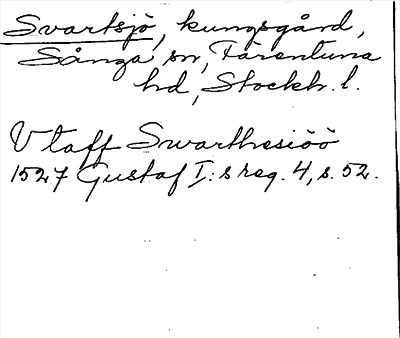 Svartsjö, kungsgård,
Sånga sn, Färentuna
hd, Stockh. l.
V taff Swarthesiöö
1527 Gustaf I:s reg. 4, s. 52.